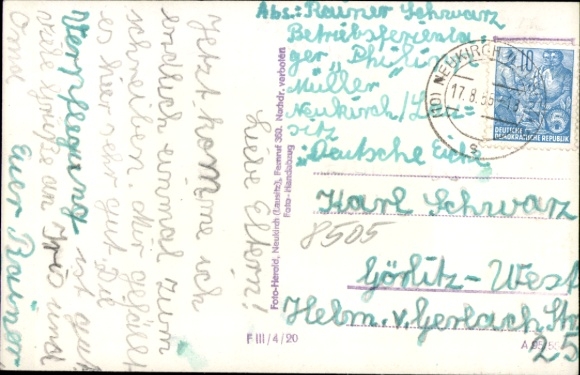 Liebe Eltern!
Jetzt komme ich
endlich einmal zum
schreiben. Mir gefällt
es hier sehr gut. Die
Verpflegung ist gut
Viele Grüße an Iris und
Oma. Euer Rainer
Foto-Herold, Neukirch (Lausitz), Fernruf 352. Nachdr. verboten
Foto-Handabzug
F III/4/20
Abs.: Rainer Schwarz
Betriebsferienla=
ger "Philipp
Müller"
Neukirch/Lau=
sitz
"Deutsche Eiche"
(10) NEUKIRCH
17.8.55
s
10
DEUTSCHE
DEMOKRATISCHE REPUBLIK
Karl Schwarz
8505
Görlitz-West
Helm. v. Gerlach Str
25